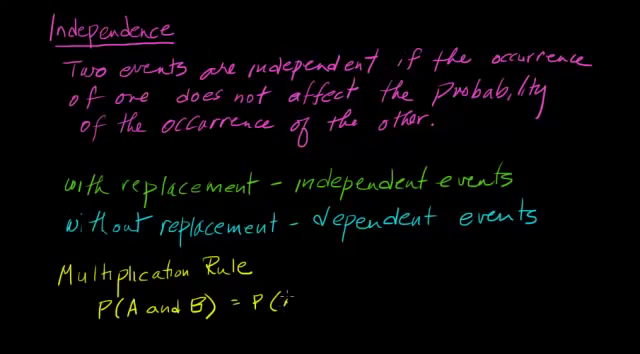 Independence
Two events are independent if the occurrence
of one does not affect the probability
of the occurrence of the other.
with replacement - independent events
without replacement - dependent events
Multiplication Rule
P(A and B) = P(